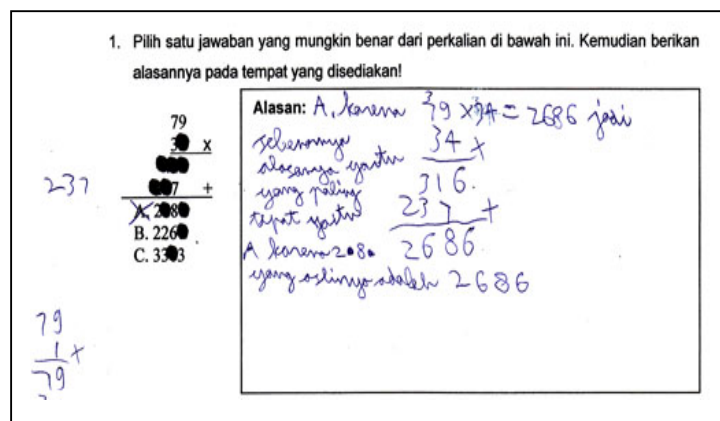 1. Pilih satu jawaban yang mungkin benar dari perkalian di bawah ini. Kemudian berikan
alasannya pada tempat yang disediakan!
79
3● x
●●●
●●7 +
A. 2●8●
B. 226●
C. 33●3
237
79
1 x
79
Alasan: A, karena 79 x 34 = 2686 jadi
sebenarnya
alasanya yaitu
yang paling
tepat yaitu
A karena 2●8●
yang aslinya adalah 2686
34 x
316
237 +
2686